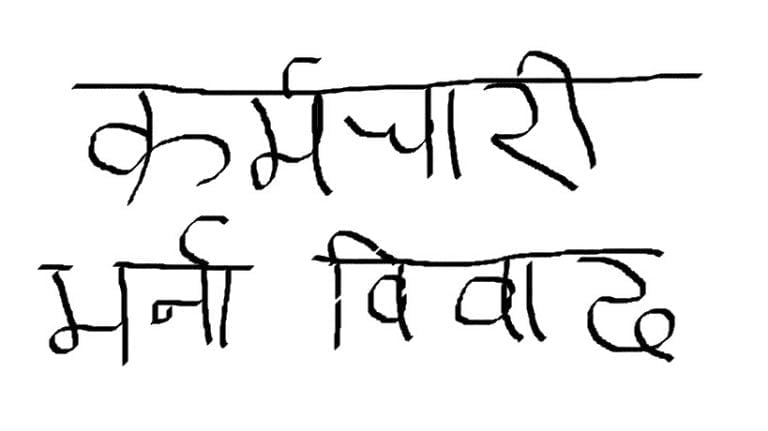 कर्मचारी
भर्ना विवाद